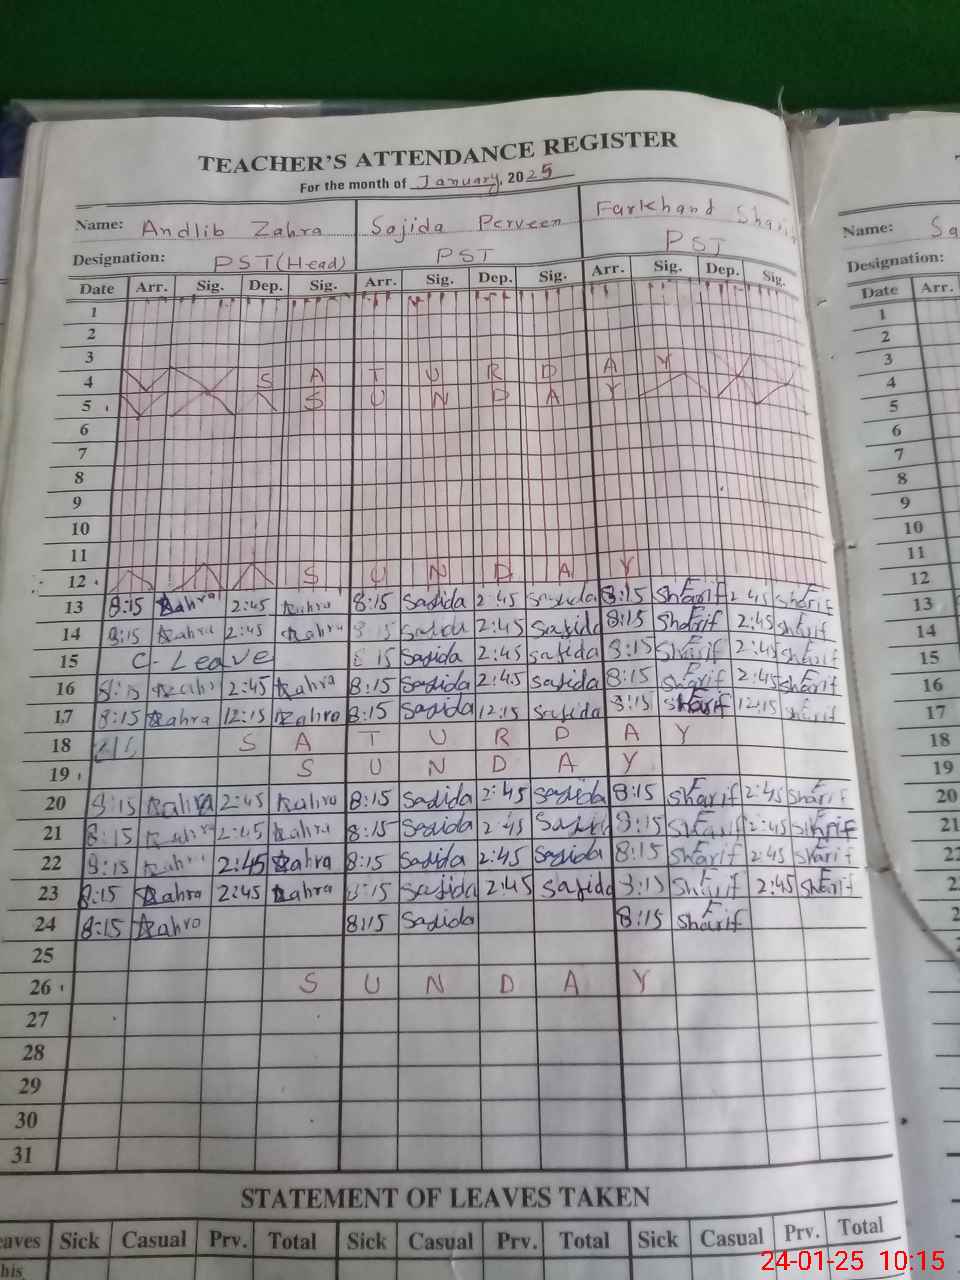 TEACHER'S ATTENDANCE REGISTER
For the month of January, 2025
Name: Andlib Zahra Sajida Perveen Farkhand Sharif
Designation: PST (Head) PST PST
Date Arr. Sig. Dep. Sig. Arr. Sig. Dep. Sig. Arr. Sig. Dep. Sig.
1
2
3
4 S A T U R D A Y
5 S U N D A Y
6
7
8
9
10
11
12 S U N D A Y
13 8:15 Zahra 2:45 Zahra 8:15 Sajida 2:45 Sajida 8:15 Sharif 2:45 Sharif
14 8:15 Zahra 2:45 Zahra 8:15 Sajida 2:45 Sajida 8:15 Sharif 2:45 Sharif
15 C-Leave 8:15 Sajida 2:45 Sajida 8:15 Sharif 2:45 Sharif
16 8:15 Zahra 2:45 Zahra 8:15 Sajida 2:45 Sajida 8:15 Sharif 2:45 Sharif
17 8:15 Zahra 12:15 Zahra 8:15 Sajida 12:15 Sajida 8:15 Sharif 12:15 Sharif
18 S A T U R D A Y
19 S U N D A Y
20 8:15 Zahra 2:45 Zahra 8:15 Sajida 2:45 Sajida 8:15 Sharif 2:45 Sharif
21 8:15 Zahra 2:45 Zahra 8:15 Sajida 2:45 Sajida 8:15 Sharif 2:45 Sharif
22 8:15 Zahra 2:45 Zahra 8:15 Sajida 2:45 Sajida 8:15 Sharif 2:45 Sharif
23 8:15 Zahra 2:45 Zahra 8:15 Sajida 2:45 Sajida 8:15 Sharif 2:45 Sharif
24 8:15 Zahra 8:15 Sajida 8:15 Sharif
25
26 S U N D A Y
27
28
29
30
31
STATEMENT OF LEAVES TAKEN
Sick Casual Prv. Total Sick Casual Prv. Total Sick Casual Prv. Total
Name:
Designation:
Date Arr.
1
2
3
4
5
6
7
8
9
10
11
12
13
14
15
16
17
18
19
20
21
24-01-25 10:15